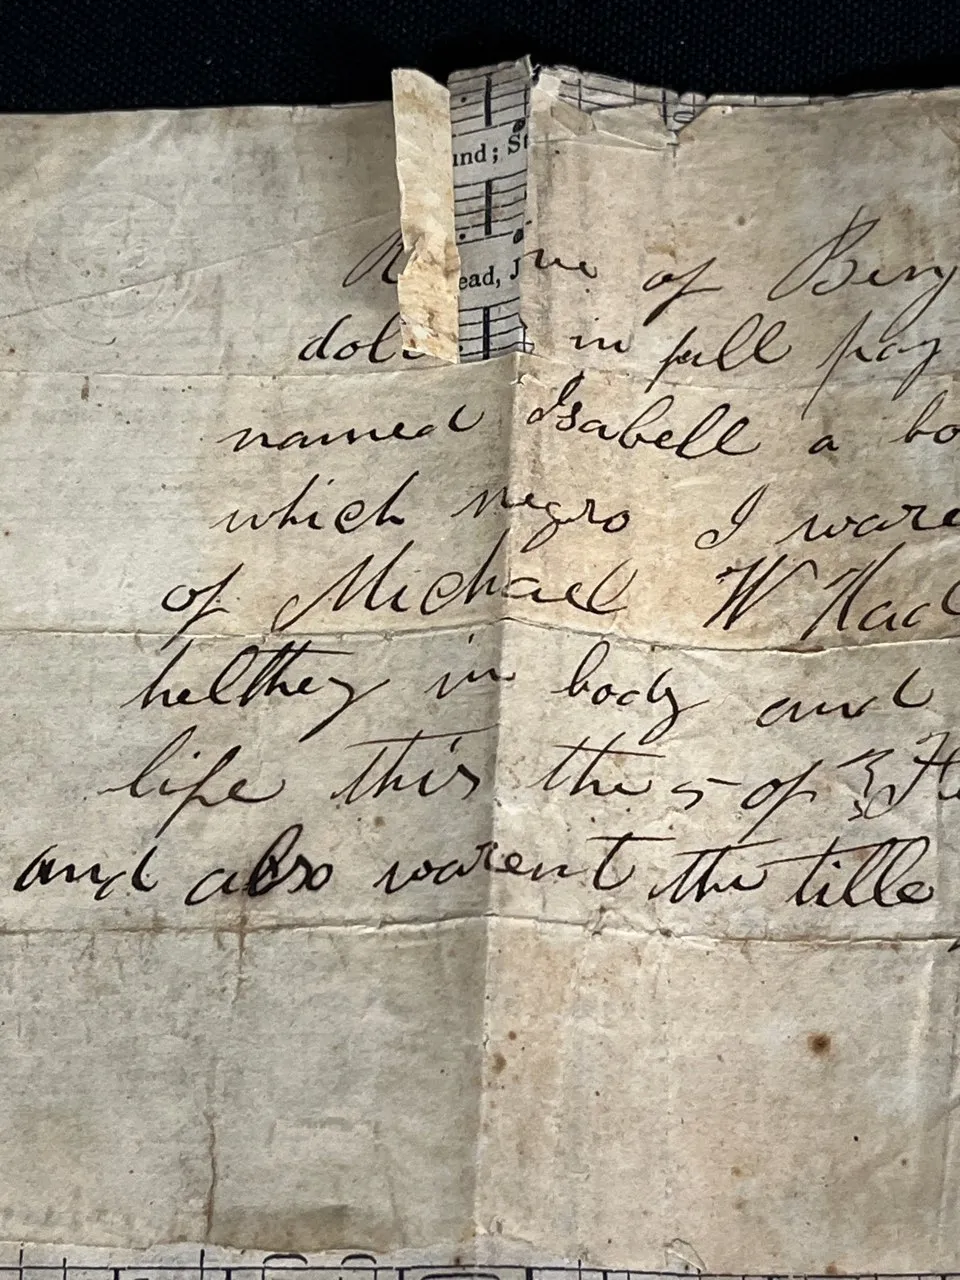 und; St
ead, J
of Benj
dol in full pay
named Isabell a bo
which negro I ware
of Michael W Had
helthey in body and
life this the 5 of Fe
and also warent the title